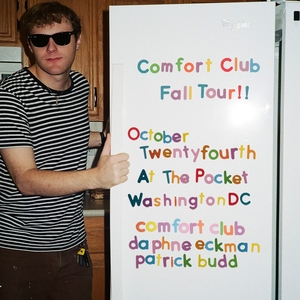 Comfort Club
Fall Tour!!
October
Twentyfourth
At The Pocket
Washington DC
comfort club
daphne eckman
patrick budd